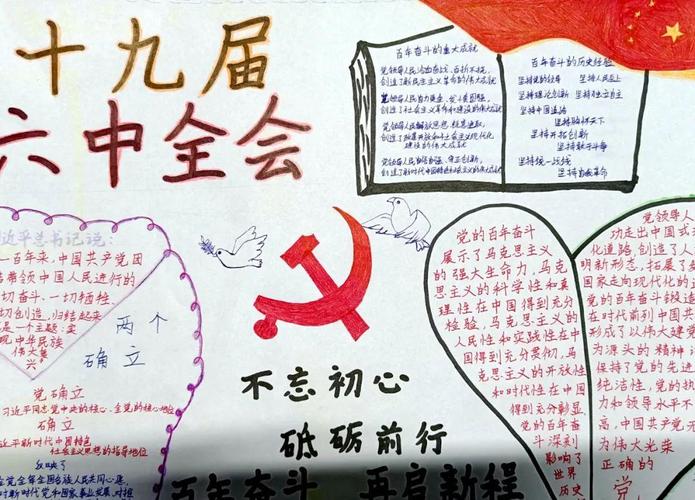 十九届
六中全会
百年奋斗的重大成就
党领导人民浴血奋战、百折不挠,
创造了新民主主义革命的伟大成就
党领导人民自力更生、发愤图强,
创造了社会主义革命和建设的伟大成就
党领导人民解放思想、锐意进取,
创造了改革开放和社会主义现代化
建设的伟大成就
党领导人民自信自强、守正创新,
创造了新时代中国特色社会主义的伟大成就
百年奋斗的历史经验
坚持党的领导 坚持人民至上
坚持理论创新 坚持独立自主
坚持中国道路
坚持胸怀天下
坚持开拓创新
坚持敢于斗争
坚持统一战线
坚持自我革命
近平总书记说:
一百年来,中国共产党团
结带领中国人民进行的
切奋斗、一切牺牲、
切创造,归结起来
是一个主题:实
现中华民族
伟大复
兴
两个
确立
党确立
习近平同志党中央的核心、全党的核心地位
确立
近平新时代中国特色
社会主义思想的指导地位
反映了
全党全军全国各族人民共同心愿,
新时代党和国家事业发展、对推
不忘初心
砥砺前行
百年奋斗 再启新程
党的百年奋斗
展示了马克思主义
的强大生命力,马克
思主义的科学性和真
理性在中国得到充分
检验,马克思主义的
人民性和实践性在中
国得到充分贯彻,马克
思主义的开放性
和时代性在中国
得到充分彰显,
党的百年奋
斗深刻
影响了
世界
历史
党领导人
功走出中国式
化道路,创造了人
明新形态,拓展了
国家走向现代化的
党的百年奋斗锻造
在时代前列中国共
形成了以伟大建党
为源头的精神
保持了党的先进
纯洁性,党的执
力和领导水平不
高,中国共产党无
为伟大光荣
正确的
党